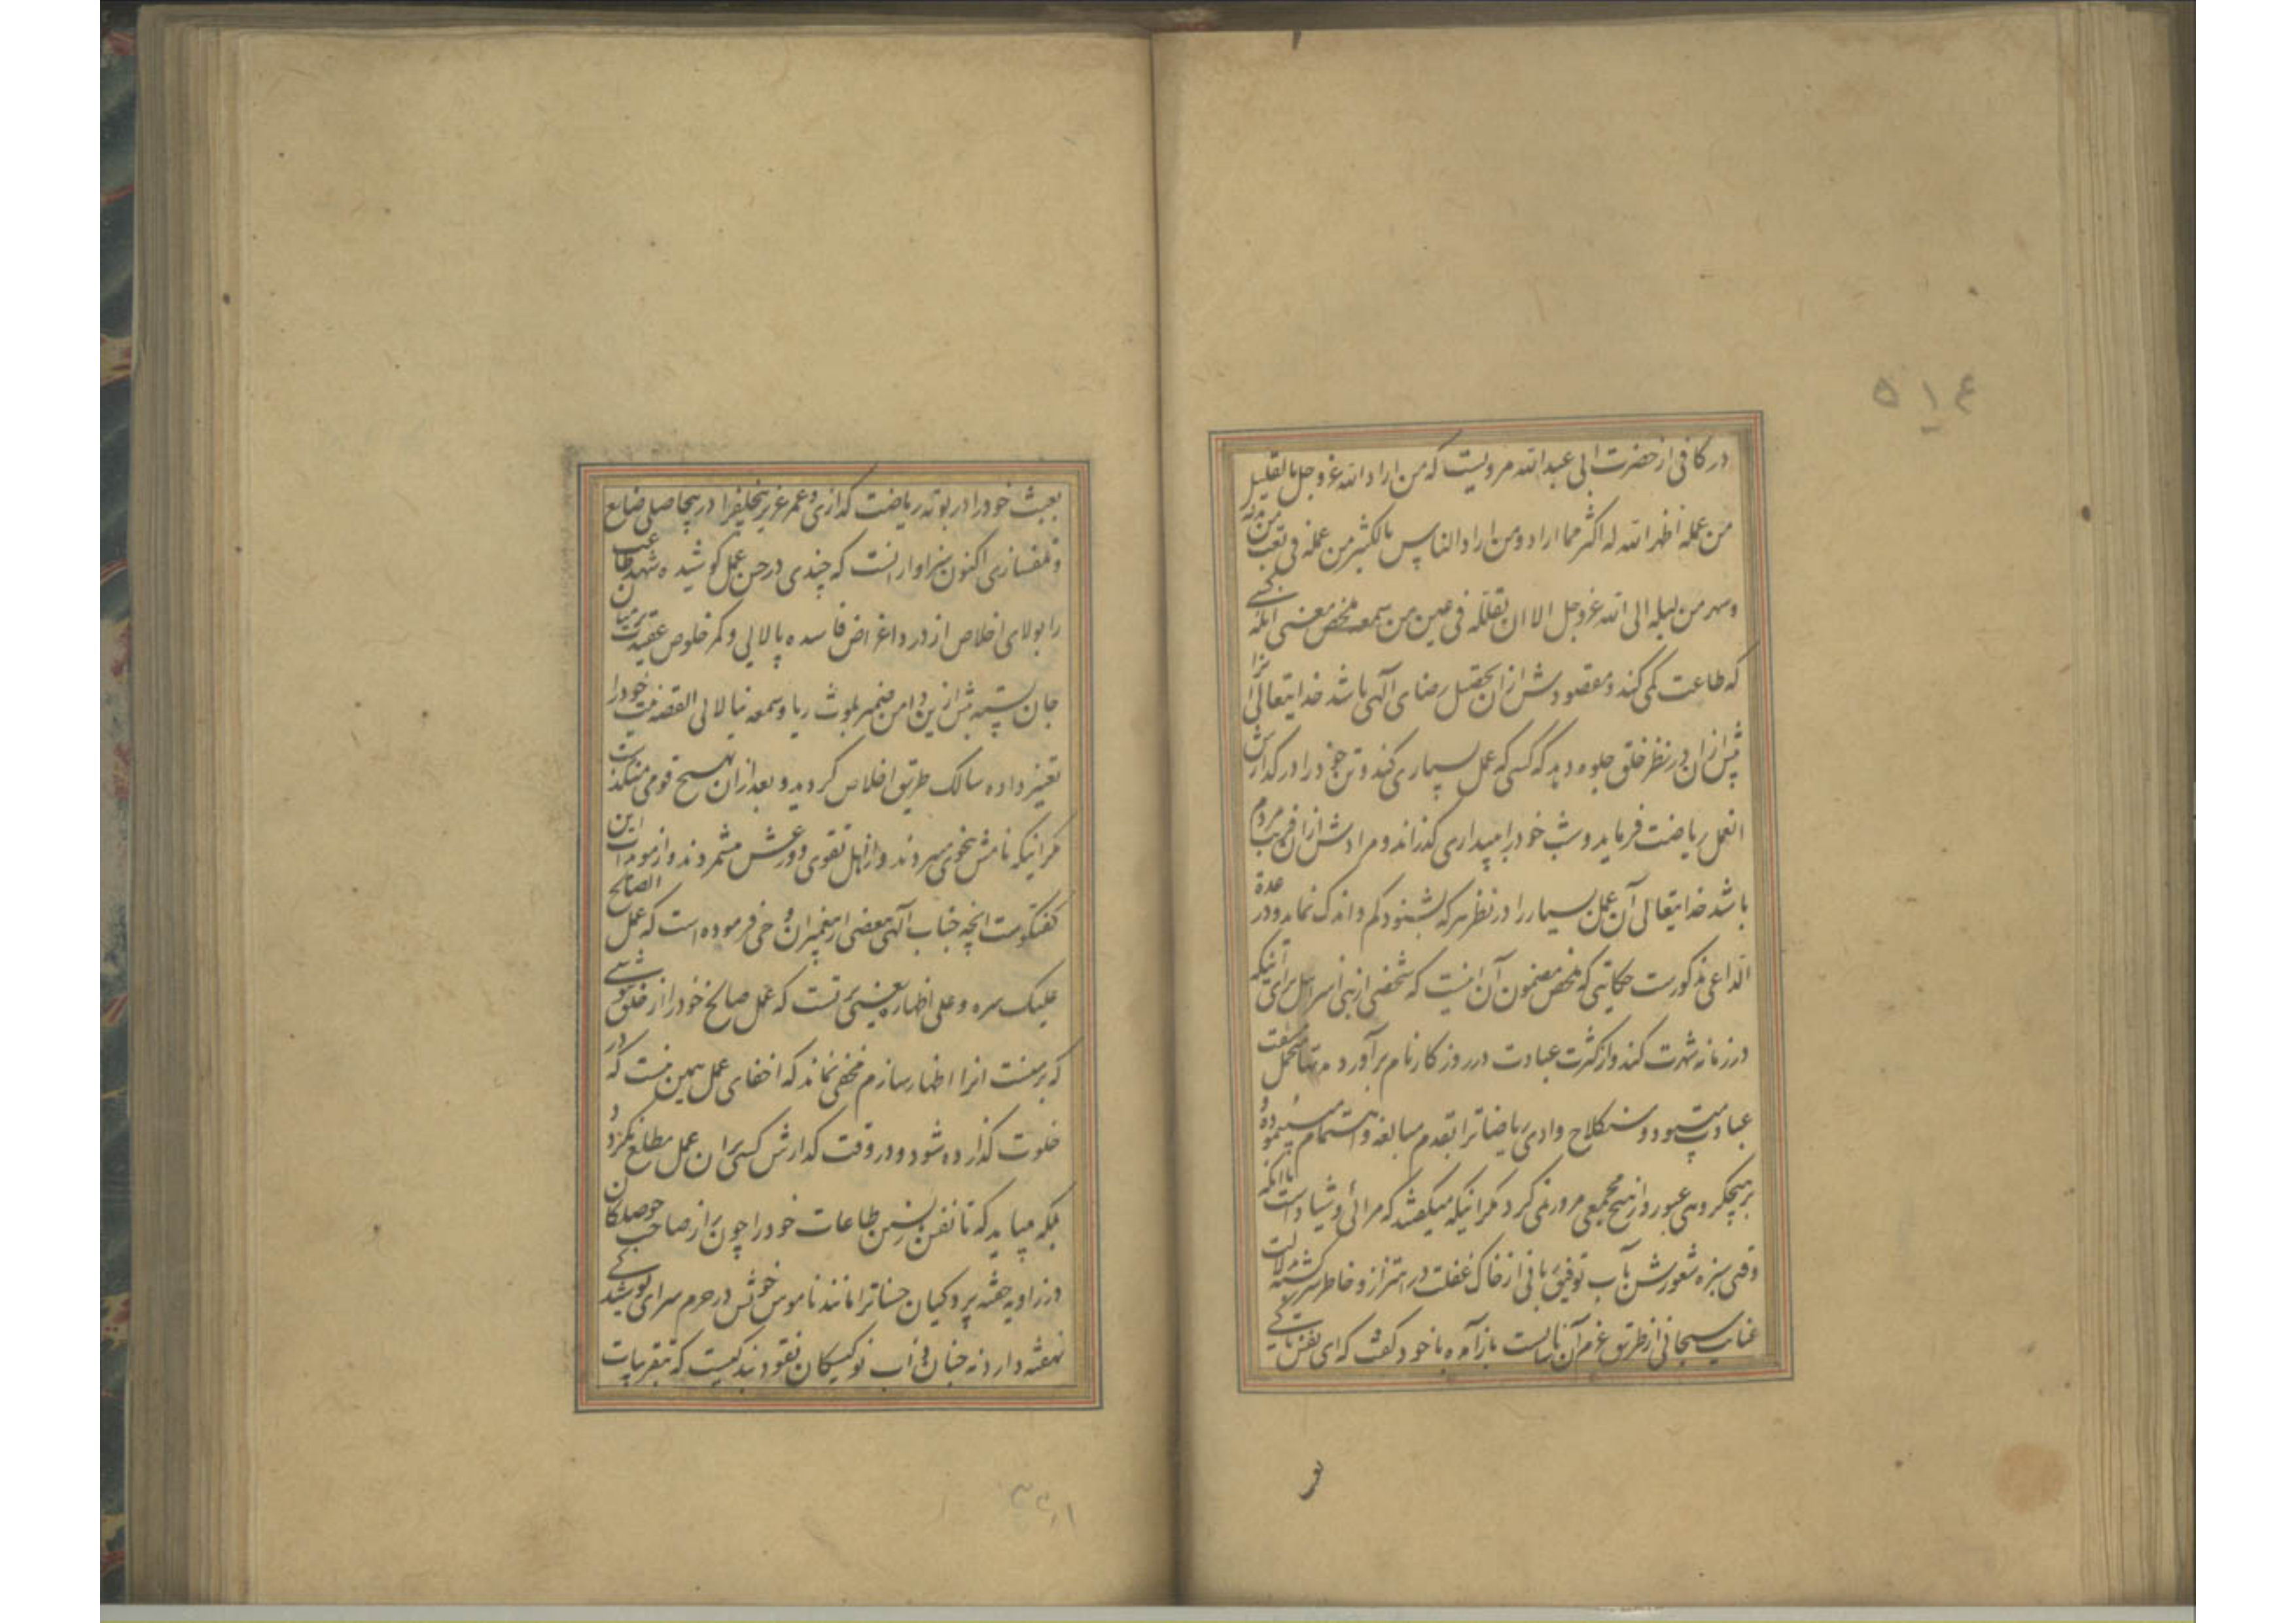 ۵۱۴
در کافی از حضرت ابی عبدالله مرویست که من اراد الله عز وجل بالقلیل
من عمله اظهر الله له اکثر مما اراد و من اراد الناس بالکثیر من عمله فی تعب من بدنه
وسهر من لیله ابی الله عز وجل الا ان یقلله فی عین من سمعه ملخص معنی آنکه کسی
که طاعت کمی کند و مقصودش از ان تحصیل رضای الهی باشد خدایتعالی انرا
پیش از ان در نظر خلق جلوه دهد که کسی که عمل بسیاری کند و تن خود را در گذارش
انعمل ریاضت فرماید و شب خود را ببیداری گذراند و مرادش از ان فریب مردم
باشد خدایتعالی آن عمل بسیار را در نظر هر که بشنود کم و اندک نماید و در عدة
الداعی مذکورست حکایتی که ملخص مضمون آن اینست که شخصی از بنی اسرائیل برای آنکه
در زمانه شهرت کند و از کثرت عبادت در روزگار نام برآورد مدتها متحمل مشقت
عبادت میبود و سنگلاخ وادی ریاضاترا بقدم مبالغه و اهتمام می پیموده و
بر هیچ گروهی عبور و از هیچ مجمعی مرور نمی کرد مگر اینکه میگفتند که مرائی و شیاد است تا آنکه
وقتی سبزه شعورش بآب توفیق یافی از خاک غفلت در اهتزاز و خاطر سرگشته بدلالت
عنایت سبحانی از طریق عزم آن نابایست باز آمده با خود گفت که ای نفس تا کی
بعبث خود را در بوته ریاضت گدازی و عمر عزیز را در بیحاصلی ضایع
و تلف سازی اکنون سزاوار انست که چندی در حسن عمل کوشیده شهد طاعت
را بپالای اخلاص از درد اغراض فاسده پالایی و کمر خلوص عقیدت بر میان
جان بسته بیش ازین دامن ضمیر بلوث ریا و سمعه نیالایی القصه نیت خود را
تغییر داده سالک طریق اخلاص گردید و بعد از ان بهیچ قومی نمیگذشت
مگر اینکه نامش بنیکویی میبردند و از اهل تقوی و ورعش میشمردند و از مؤیدات این
گفتگوست آنچه جناب الهی ببعضی از پیغمبران وحی فرموده است که عمل الصالح
علیک سره و علی اظهاره یعنی بر تست که عمل صالح خود را از خلق پوشی
که بر منست انرا اظهار سازم مخفی نماند که اخفای عمل همین نیست که در
خلوت گذارده شود و در وقت گذارش کسی بر ان عمل مطلع نگردد
بلکه میباید که تا نفس پسین طاعات خود را چون راز صاحب حوصلگان
در زاویه خفیه پردگیان حسناترا مانند ناموس خویش در حرم سرای پوشیدگی
نهفته دارد نه چنان که نوکیسگان نقود بندگیست که بتقریبات